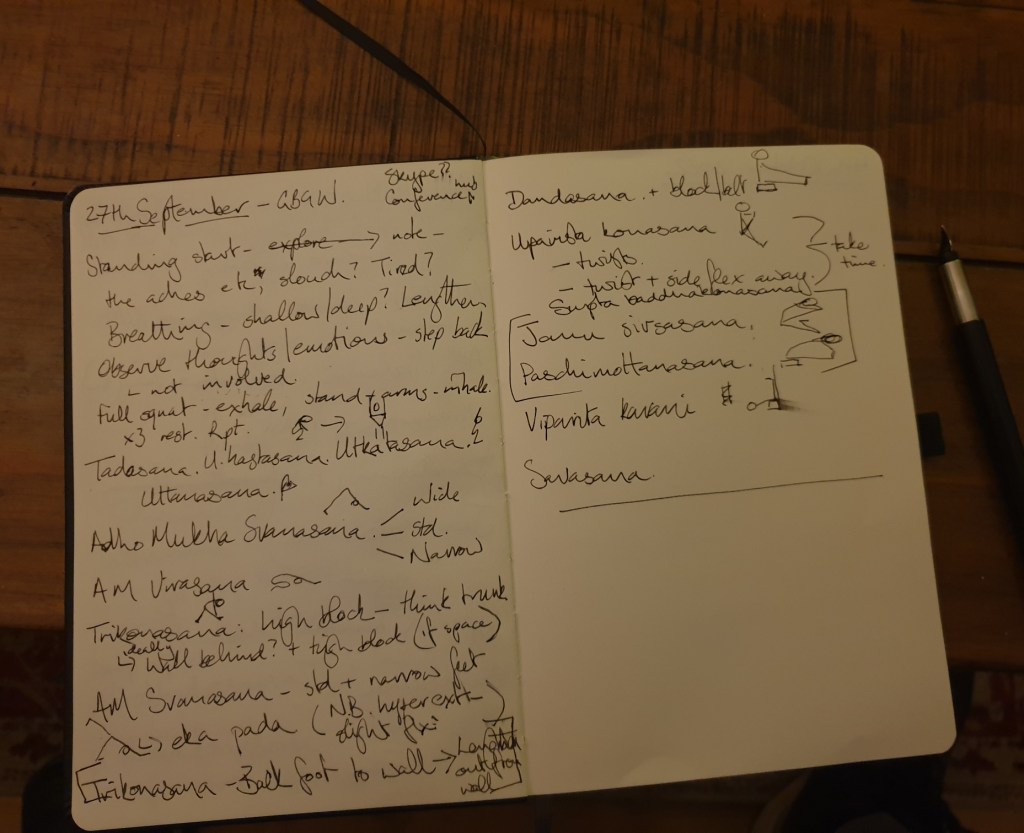 27th September - GBGW.
Skype??
Conference
Standing start - explore → note -
the aches etc, slouch? Tired?
Breathing - shallow/deep? Lengthen
Observe thoughts/emotions - step back
not involved.
Full squat - exhale, stand + arms - inhale.
x3 rest. Rpt.
Tadasana. U. hastasana. Utkatasana.
Uttanasana.
Adho Mukha Svanasana.
Wide
Std.
Narrow
AM Virasana
Trikonasana: high block - think trunk
ideally
↳ Wall behind? + high block (if space)
AM Svanasana - std + narrow feet
↳ eka pada (NB. hyperext -
slight flex
Trikonasana - Back foot to wall →
out from
wall
Dandasana. + block/belt
Upavista konasana
- twists.
- twist + side flex away.
take
time.
Supta baddhakonasana
Janu sirsasana.
Paschimottanasana.
Viparita karani
Savasana.